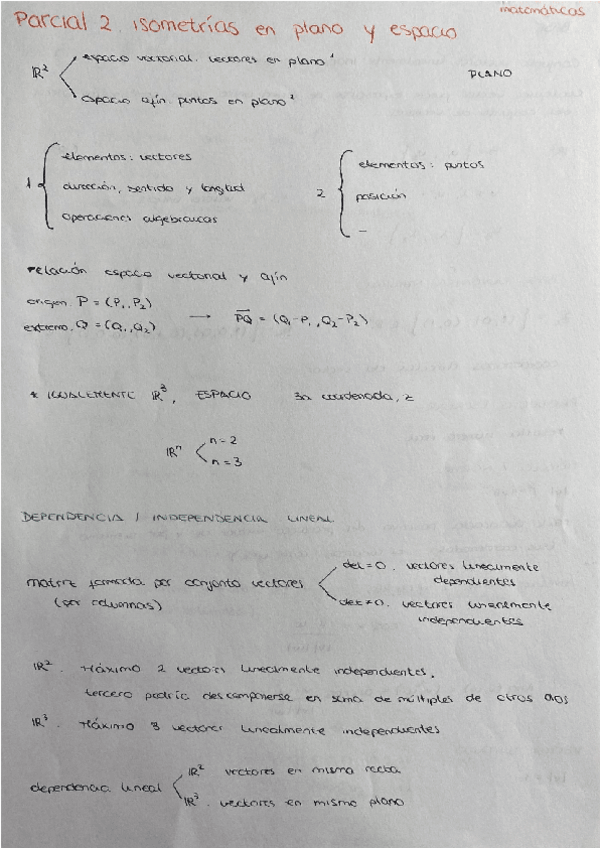 matemáticas
Parcial 2. isometrías en plano y espacio
espacio vectorial. vectores en plano 1
IR² PLANO
espacio afín. puntos en plano 2
elementos: vectores
1 dirección, sentido y longitud
operaciones algebraicas
elementos: puntos
2 posición
-
relación espacio vectorial y afín
origen. P = (P₁, P₂)
extremo. Q = (Q₁, Q₂) → PQ = (Q₁-P₁, Q₂-P₂)
* IGUALMENTE IR³, ESPACIO 3a coordenada, z
n = 2
IRⁿ
n = 3
DEPENDENCIA / INDEPENDENCIA LINEAL
det = 0. vectores linealmente
dependientes
matriz formada por conjunto vectores
(por columnas)
det ≠ 0. vectores linealmente
independientes
IR². Máximo 2 vectores linealmente independientes.
tercero podría descomponerse en suma de múltiples de otros dos
IR³. Máximo 3 vectores linealmente independientes
IR² vectores en misma recta
dependencia lineal
IR³. vectores en mismo plano